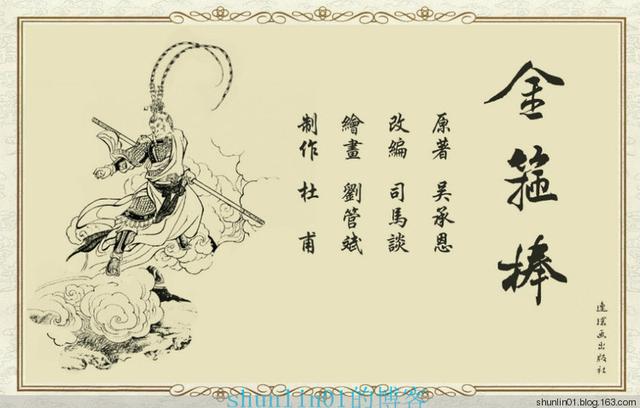 金箍棒
原著 吳承恩
改編 司馬談
繪畫 劉管斌
制作 杜甫
連環画出版社
shunlin01的博客
shunlin01.blog.163.com